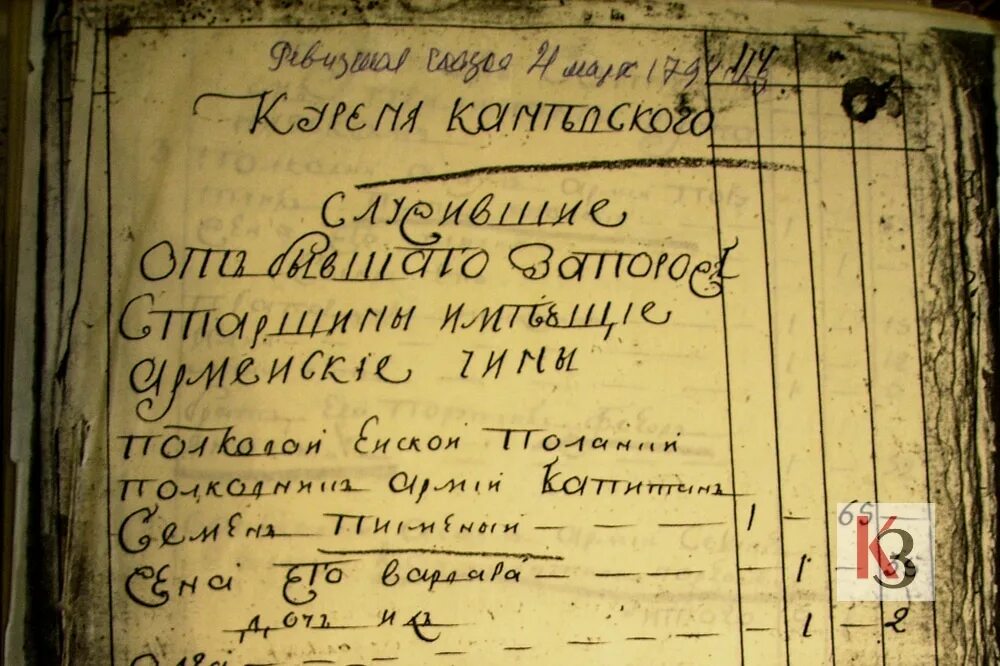 Ревизская сказка 4 март 1794
Куреня Каниѣвского
служившие
отъ бывшаго Запорожъ
Старшины имѣющіе
армейскіе чины
полковой Енской Поланки
полковникъ армій Капитанъ
Семенъ Писменный — — — — 1 — 65
Жена его варвара — — — 1 —
дочь ихъ — 1 — 2
КЗ